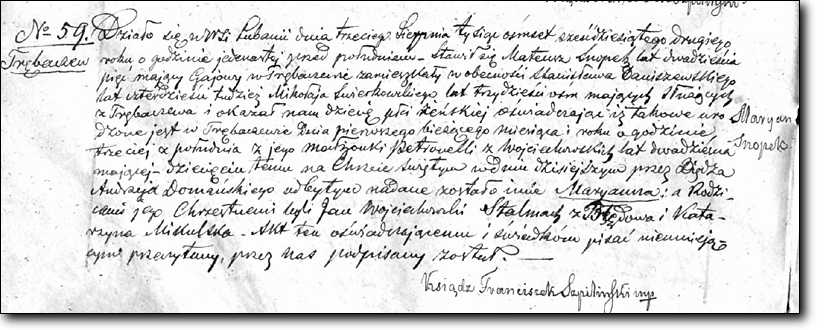 No 59.
Trębaczew
Działo się w Wsi Lubanii dnia trzeciego Sierpnia tysiąc ośmset sześćdziesiątego drugiego
roku o godzinie jedenastej przed południem. Stawił się Mateusz Snopek lat dwadzieścia
pięć mający Gajowy w Trębaczewie zamieszkały w obecności Stanisława Daniszewskiego
lat czterdzieści tudzież Mikołaja Świerkowskiego lat trzydzieści ośm mających służących
z Trębaczewa i okazał nam dziecię płci żeńskiej oświadczając iż takowe uro
dzone jest w Trębaczewie dnia pierwszego bieżącego miesiąca i roku o godzinie
trzeciej z południa z jego małżonki Petronelli z Wojciechowskich lat dwadzieścia
mającej - dziecięciu temu na Chrzcie świętym w dniu dzisiejszym przez Księdza
Andrzeja Domańskiego odbytym nadane zostało imie Maryanna: a Rodzi-
cami jego Chrzestnemi byli Jan Wojciechowski Stalmach z i Kata-
rzyna Mikulska - Akt ten oświadczającemu i świadkom pisać nieumieją-
cym przeczytany, przez nas podpisany został
Ksiądz Franciszek mp
Maryan
Snopek